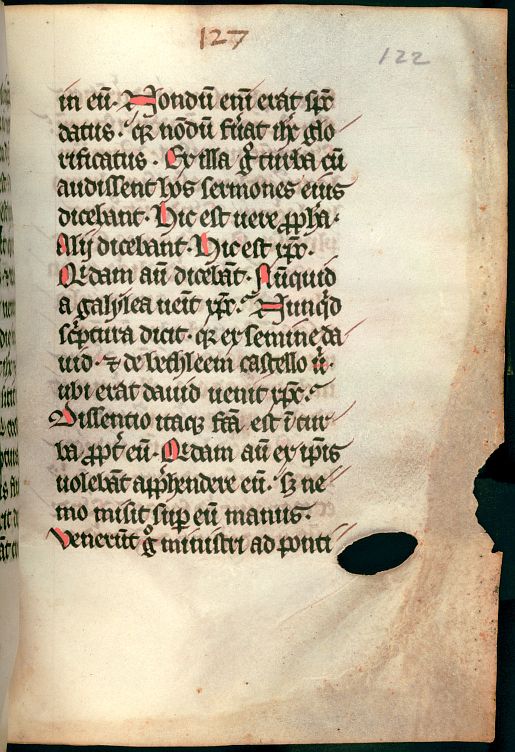 127
122
in eū. Nondū eni̅ erat spc̅
datus. qꝛ nōdū fu̅at ihc̅ glo
rificatus. Ex illa g̊ turba cū
audissent hos sermones eius
dicebant. Hic est uere ꝓph̅a.
Alij dicebant. Hic est xpc̅.
Qͥdam aū dicebāt. Nūquid
a galylea uenit xpc̅. Nunqͥd
scͥptura dicit. qꝛ ex semine da
uid. ⁊ de bethleem castello
ubi erat dauid uenit xpc̅.
Dissentio itaqꝫ fc̅a est ī tur
ba ꝓpt̅ eū. Qͥdam aū ex ip̅is
uolebāt app̅hendere eū. sꝫ ne
mo misit suꝑ eū manus.
Venerūt g̊ ministri ad ponti